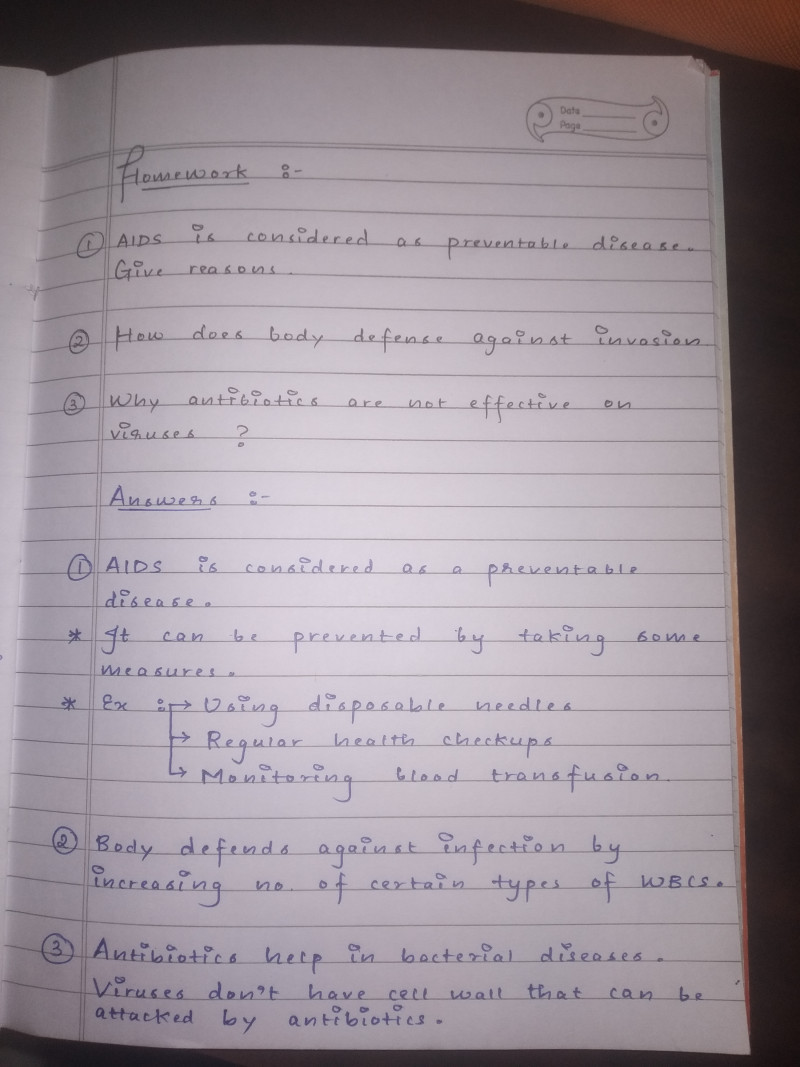 Date
Page
Homework :-
① AIDS is considered as preventable disease.
Give reasons.
② How does body defense against invasion
③ Why antibiotics are not effective on
viruses ?
Answers :-
① AIDS is considered as a preventable
disease.
* It can be prevented by taking some
measures.
* Ex :→ Using disposable needles
→ Regular health checkups
→ Monitoring blood transfusion.
② Body defends against infection by
increasing no. of certain types of WBCs.
③ Antibiotics help in bacterial diseases.
Viruses don't have cell wall that can be
attacked by antibiotics.